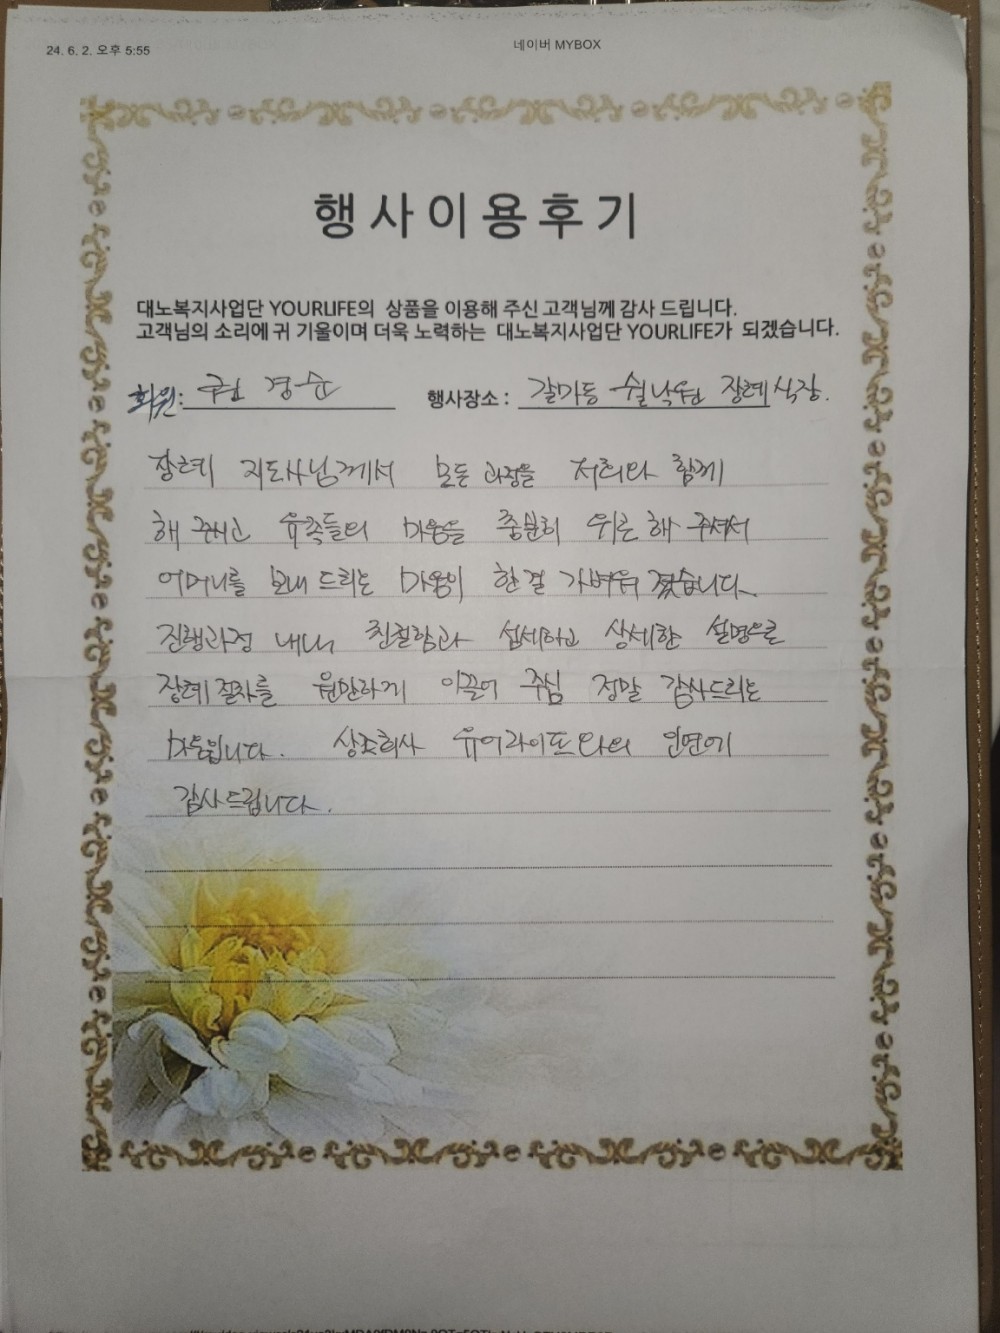 24. 6. 2. 오후 5:55
네이버 MYBOX
행사이용후기
대노복지사업단 YOURLIFE의 상품을 이용해 주신 고객님께 감사 드립니다.
고객님의 소리에 귀 기울이며 더욱 노력하는 대노복지사업단 YOURLIFE가 되겠습니다.
회원: 권 경순 행사장소 : 갈마동 쉴낙원 장례식장.
장례 지도사님께서 모든 과정을 저희와 함께
해 주시고 유족들의 마음을 충분히 위로 해 주셔서
어머니를 보내 드리는 마음이 한결 가벼워 졌습니다.
진행과정 내내 친절함과 섬세하고 상세한 설명으로
장례 절차를 원만하게 이끌어 주심 정말 감사드리는
마음입니다. 상조회사 유어라이프와의 인연에
감사드립니다.